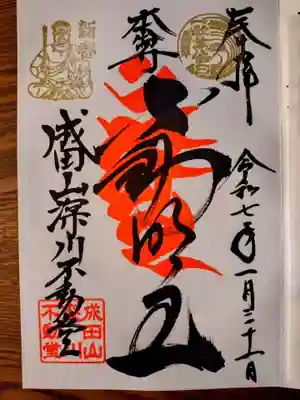 奉拝
令和七年一月二十一日
本尊
不動明王
成田山深川不動堂
成田山
深川
不動堂